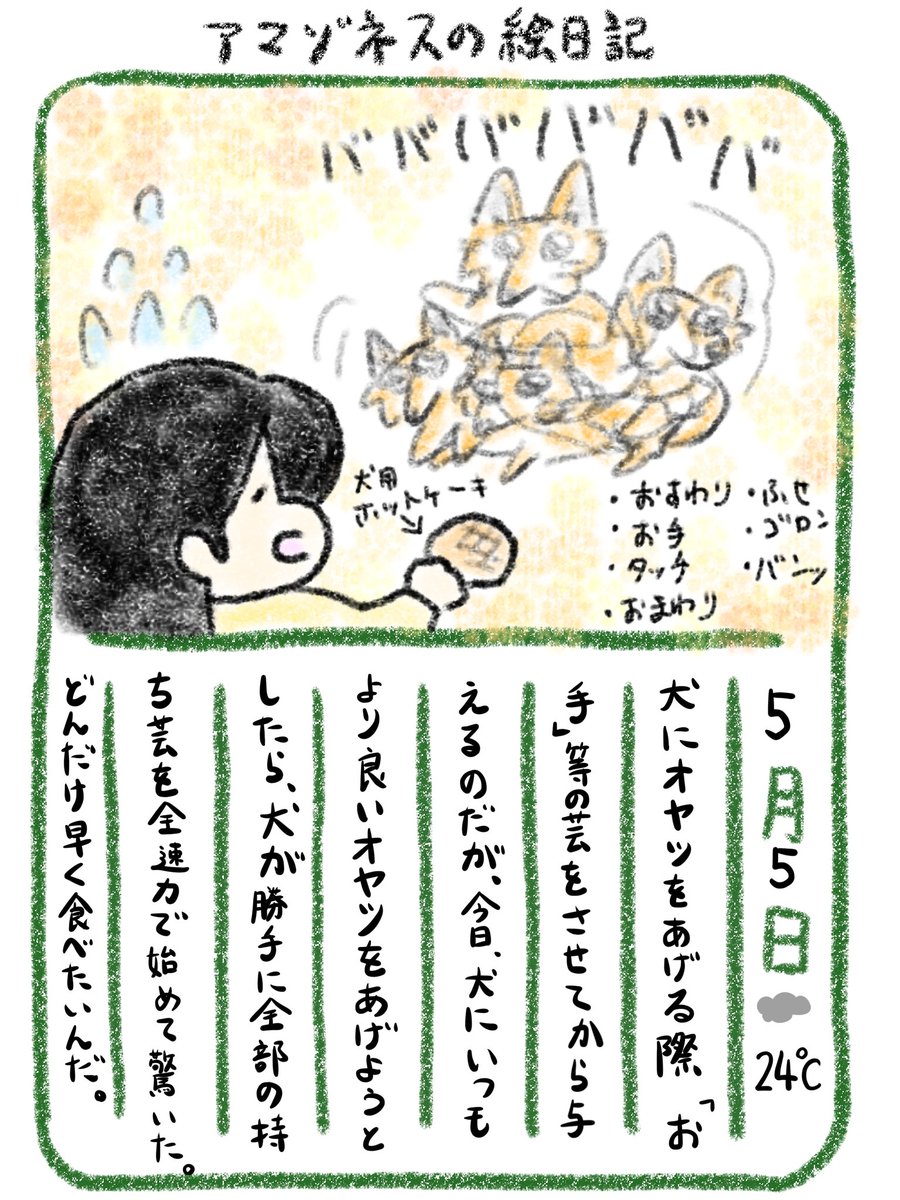 アマゾネスの絵日記
ババババババ
犬用
ホットケーキ
・おすわり
・お手
・タッチ
・おまわり
・ふせ
・ゴロン
・バーン
5月5日
24℃
犬にオヤツをあげる際、「お
手」等の芸をさせてから与
えるのだが、今日、犬にいつも
より良いオヤツをあげようと
したら、犬が勝手に全部の持
ち芸を全速力で始めて驚いた。
どんだけ早く食べたいんだ。